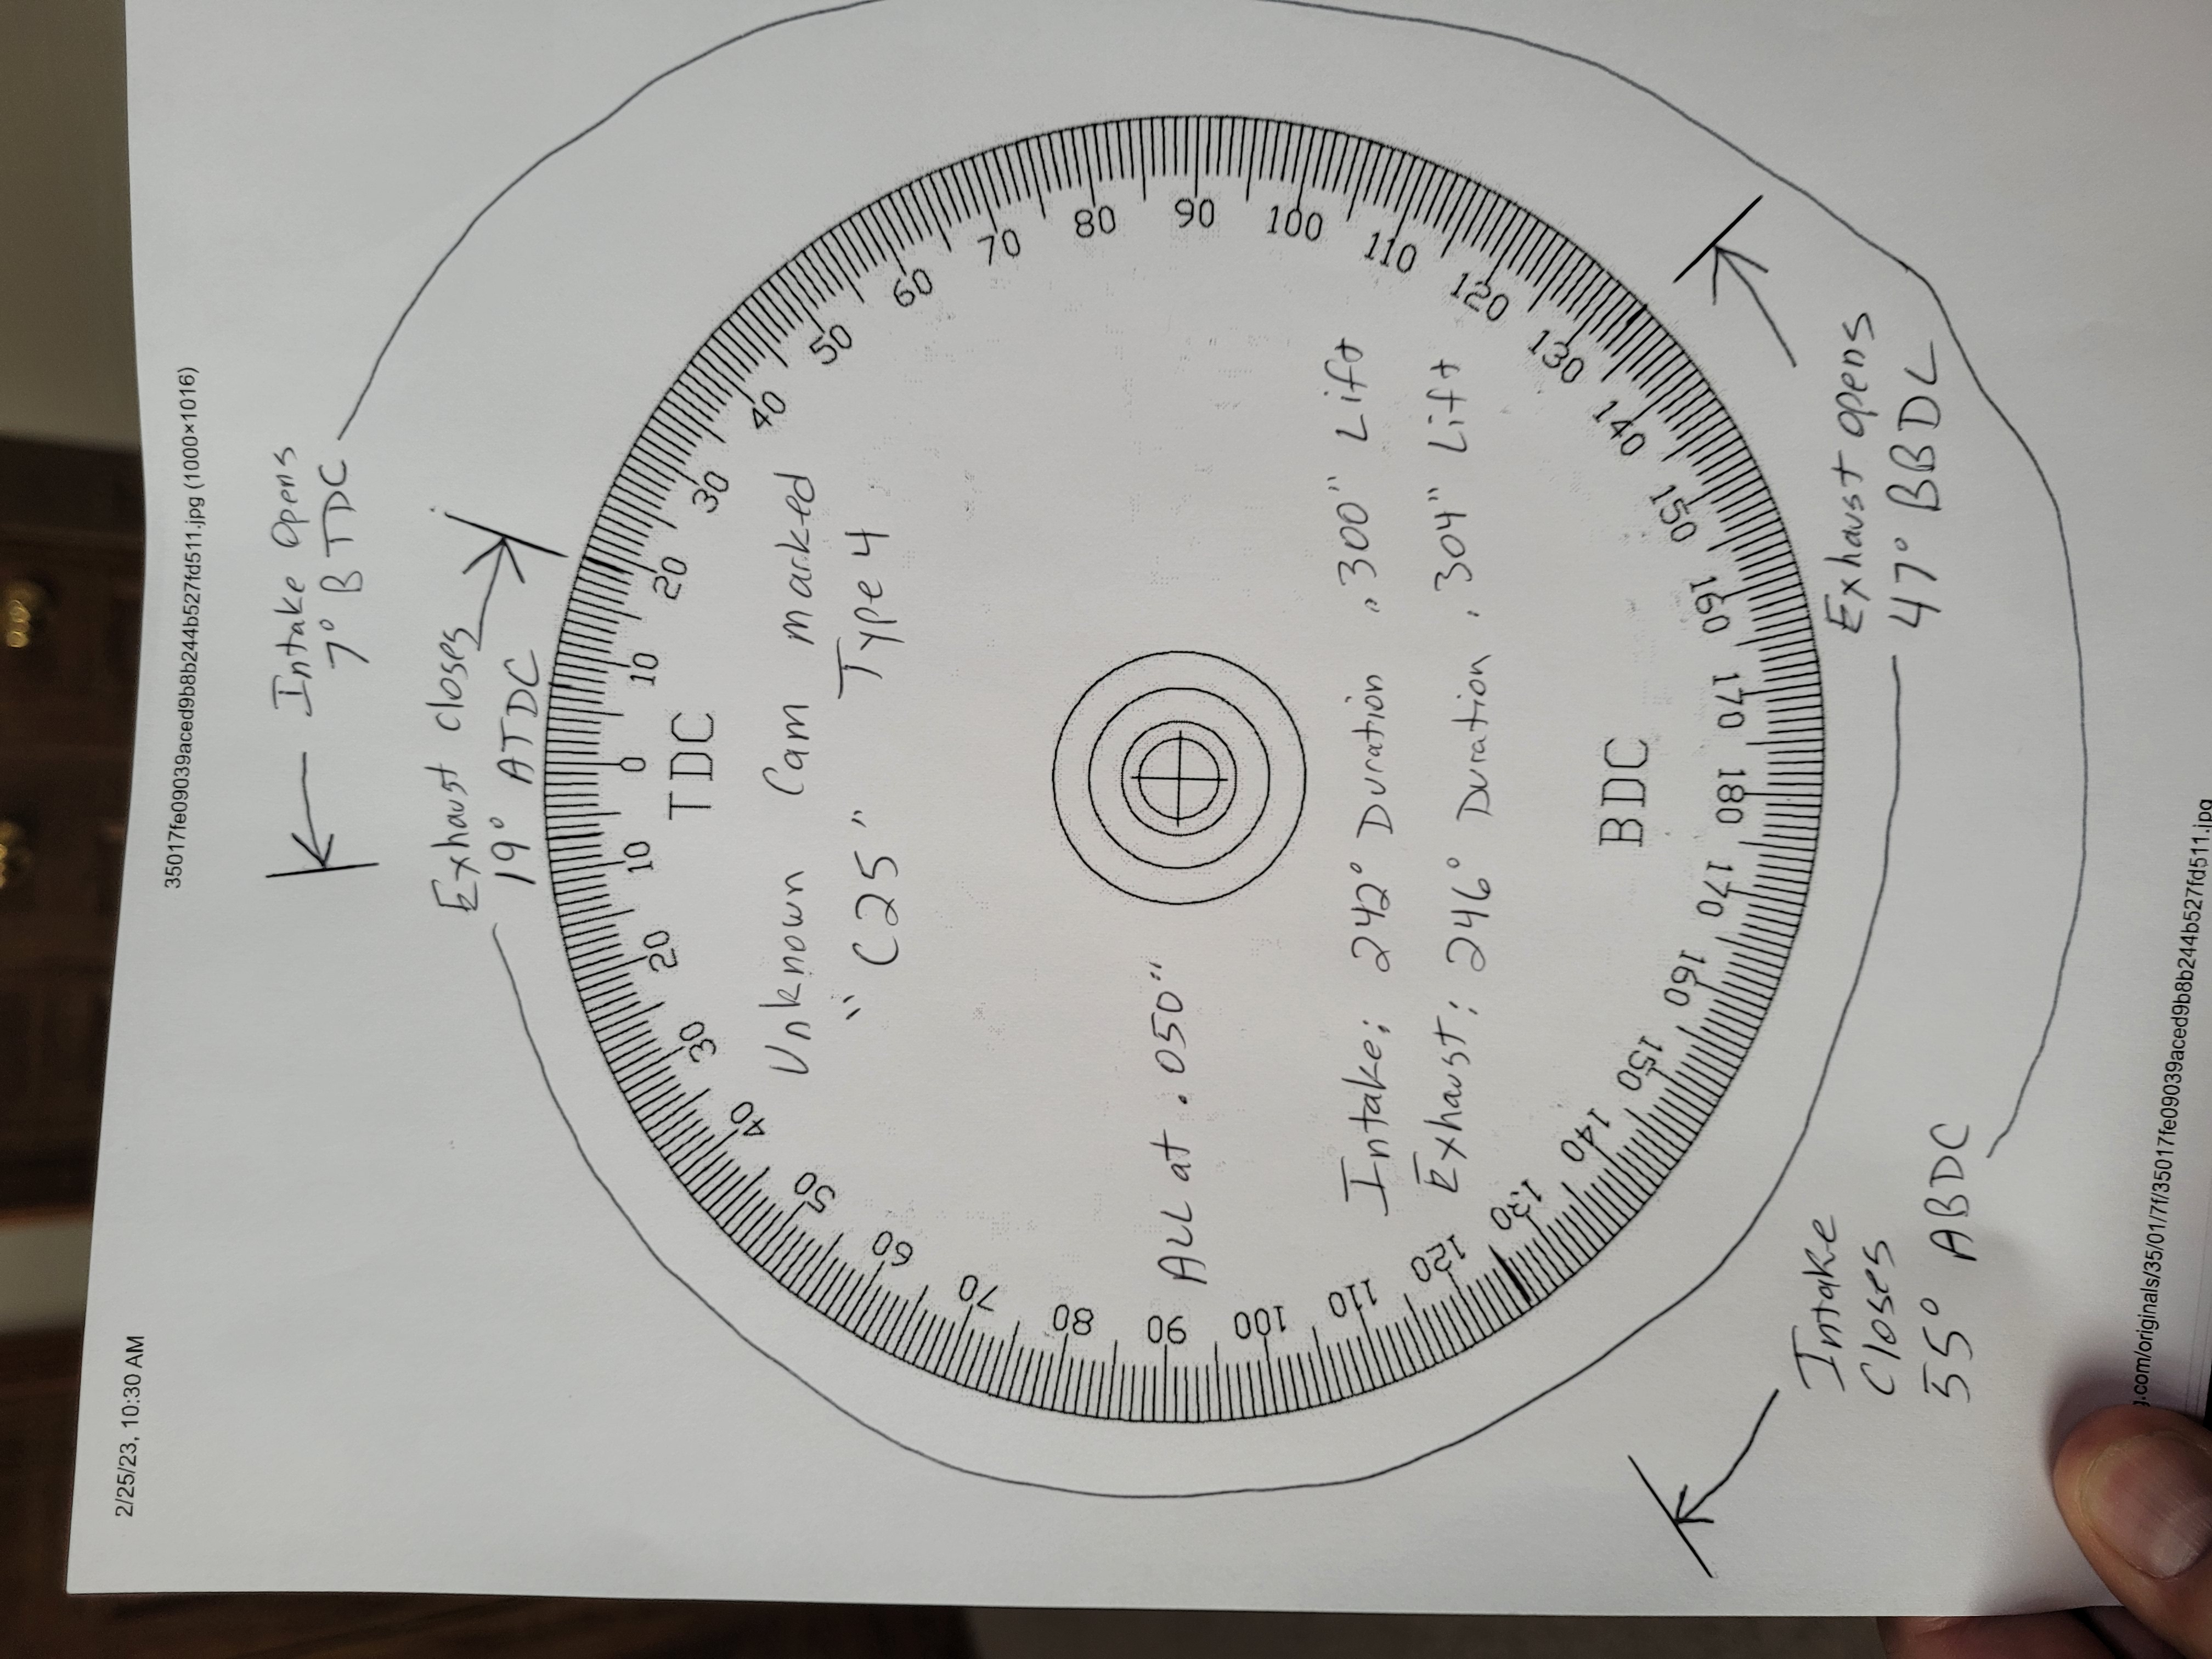 2/25/23, 10:30 AM
35017fe09039aced9b8b244b527fd511.jpg (1000×1016)
Intake Opens
7° BTDC
Exhaust closes
19° ATDC
0
10
20
30
40
50
60
70
80
90
100
110
120
130
140
150
160
170
180
170
160
150
140
130
120
110
100
90
80
70
60
50
40
30
20
10
TDC
Unknown Cam marked
"C25" Type 4
ALL at .050"
Intake: 242° Duration .300" Lift
Exhaust: 246° Duration .304" Lift
BDC
Exhaust opens
47° BBDC
Intake
Closes
55° ABDC
.com/originals/35/01/7f/35017fe09039aced9b8b244b527fd511.jpg